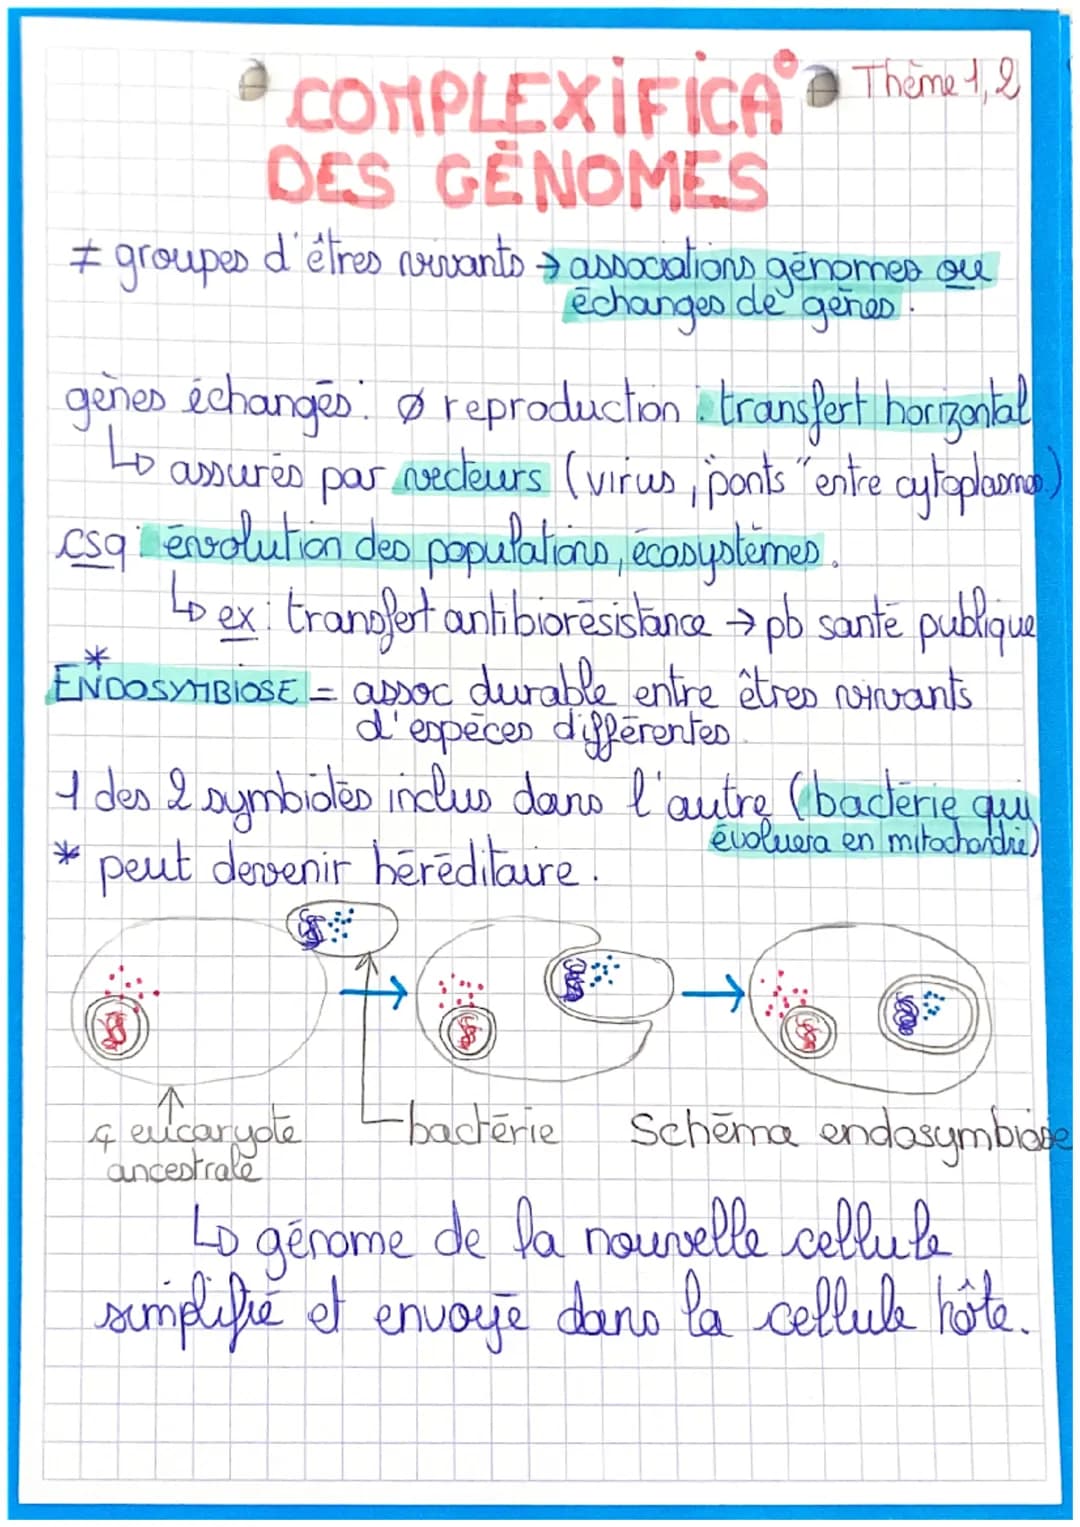 Thème 1, 2
COMPLEXIFICA°
DES GÉNOMES
≠ groupes d'êtres vivants → associations génomes ou
échanges de gènes.
gènes échangés : ø reproduction : transfert horizontal
↳ assurés par vecteurs (virus, "ponts" entre cytoplasmes)
csq : évolution des populations, écosystèmes.
↳ ex : transfert antibiorésistance → pb santé publique
*
ENDOSYMBIOSE = assoc durable entre êtres vivants
d'espèces différentes.
1 des 2 symbiotes inclus dans l'autre (bactérie qui
évoluera en mitochondrie)
* peut devenir héréditaire.
eucaryote
ancestrale
bactérie
Schéma endosymbiose
↳ génome de la nouvelle cellule
simplifié et envoyé dans la cellule hôte.